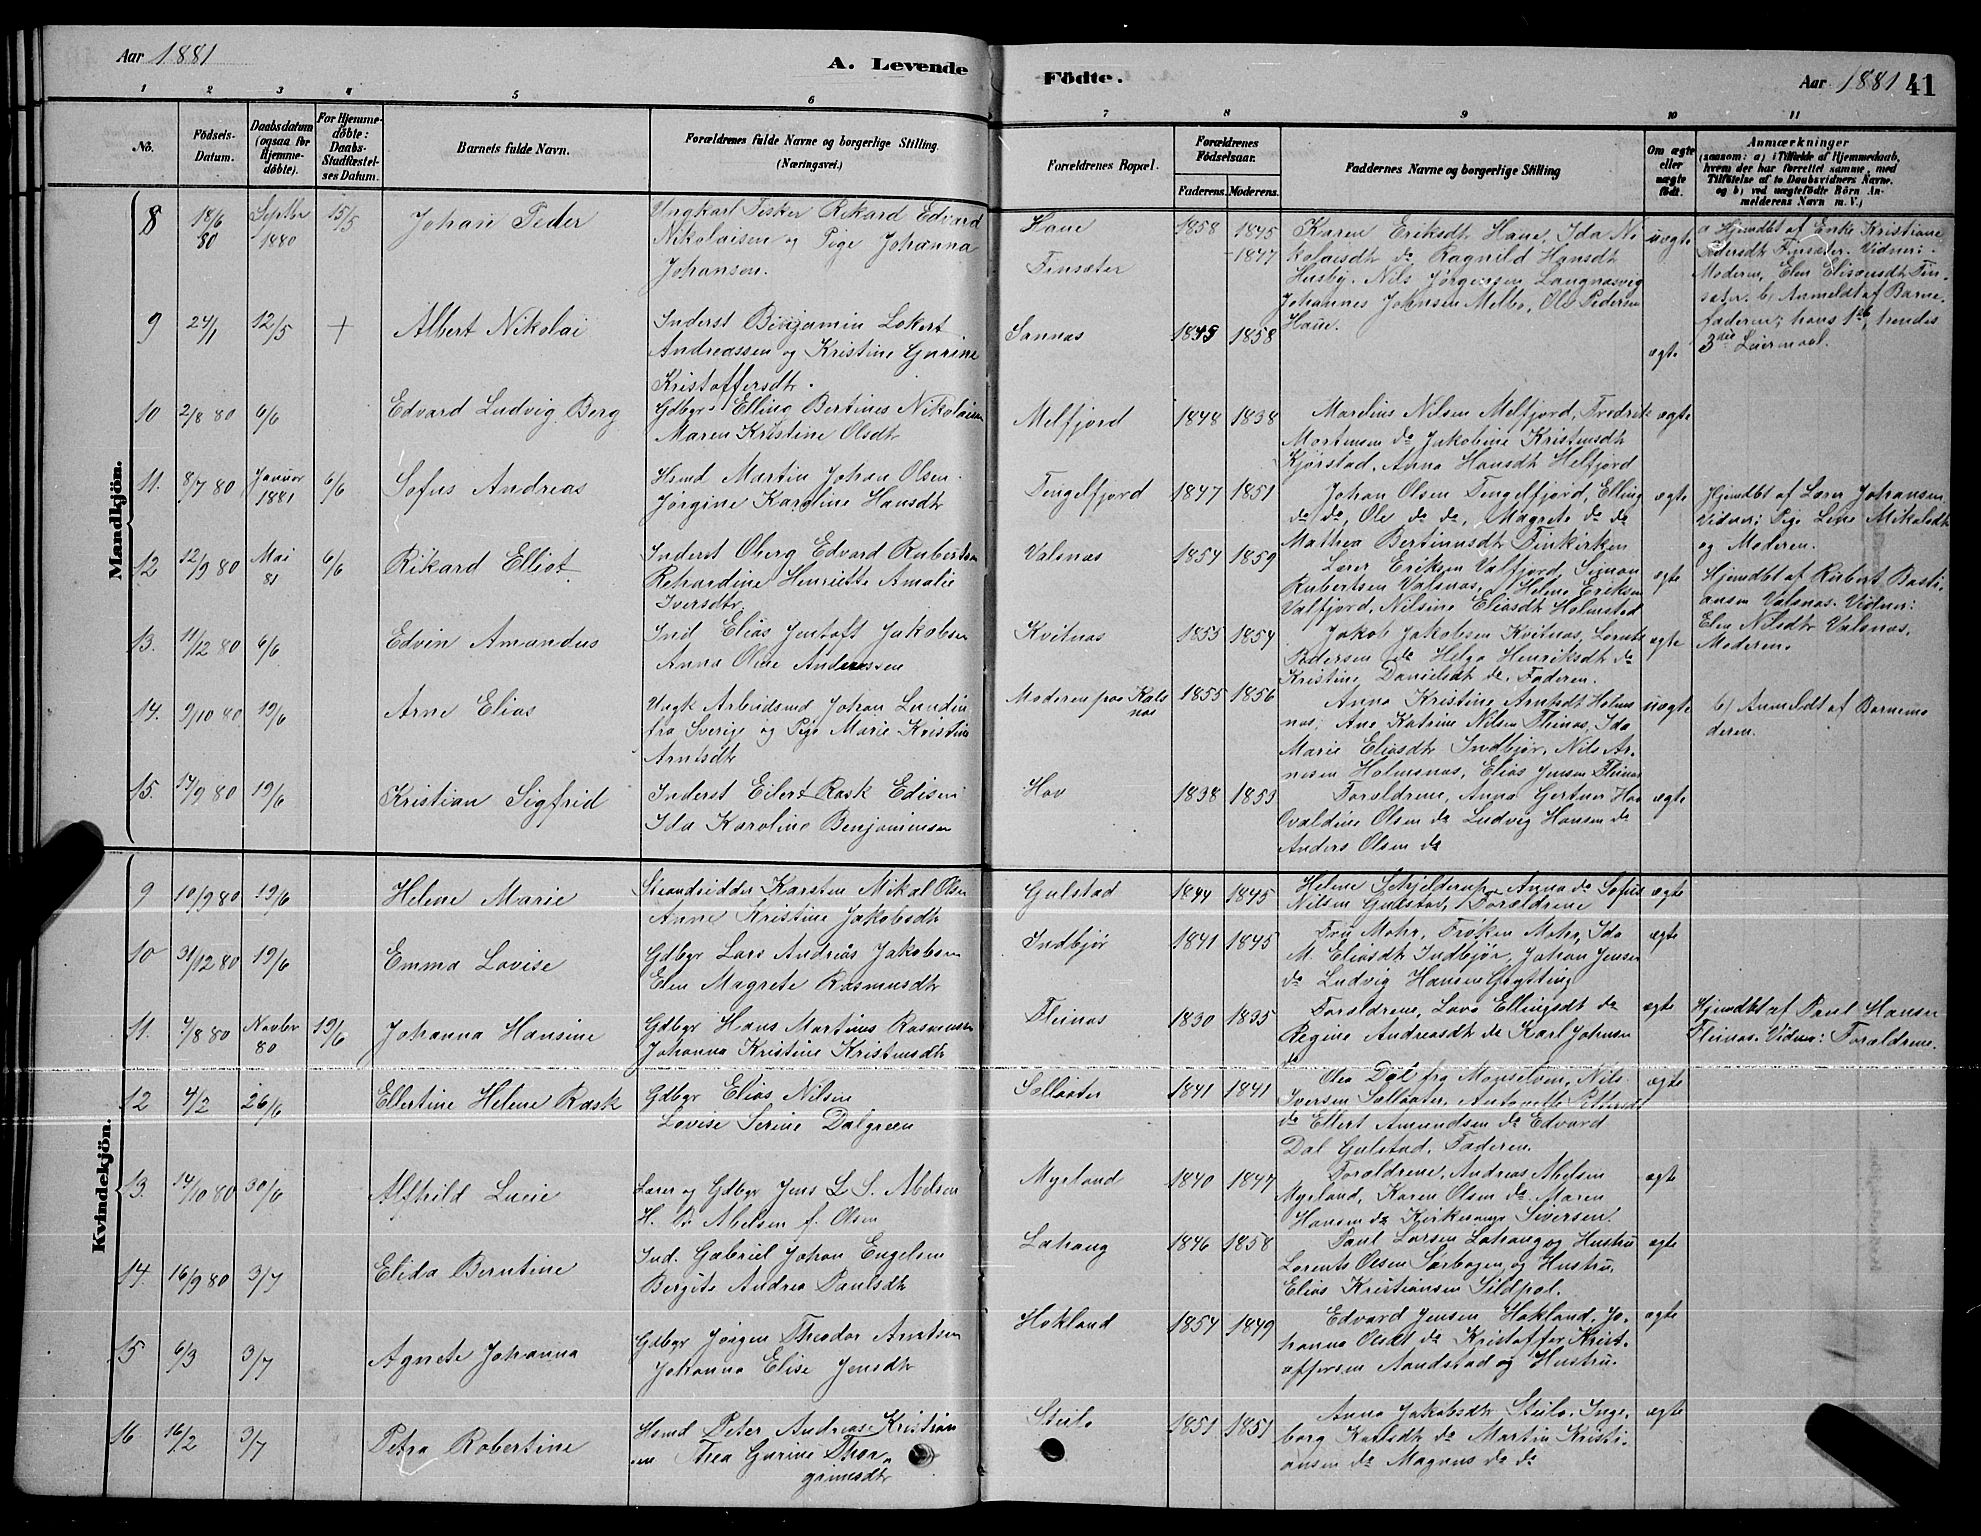 Aar 1881
A. Levende
Födte.
Aar 1881 41
1 2 3 4 5 6 7 8 9 10 11
No.
Födsels-Datum.
Daabsdatum (ogsaa for Hjemme-døbte).
For Hjemme-døbte: Daabs-Stadfæstel-ses Datum.
Barnets fulde Navn.
Forældrenes fulde Navne og borgerlige Stilling (Næringsvei.)
Forældrenes Bopæl.
Forældrenes Födselsaar.
Faderens. Moderens.
Faddernes Navne og borgerlige Stilling
Om ægte eller uægte født.
Anmærkninger
(saasom: a) i Tilfælde af Hjemmedaab, hvem der har forrettet samme, med Tilføielse af to Daabsvidners Navne. og b) ved uægtefødte Börn An-melderens Navn m. V.)
Mandkjön.
8 18/6 80 Septbr 1880 15/5 Johan Peder
Ungkarl Fisker Rikard Edvard
Nikolaisen og Pige Johanna
Johansen.
Haue
Finsæter
1858 1845
-1847
Karen Eriksdtr Haue, Ida Ni-
kolaisdtr do Ragnild Hansdtr
Husby. Nils Jørgensen Langnæsvig
Johannes Johnsen Melbo, Ole Pedersen
Haue.
uægte
a Hjemdbt af Enke Kristiane
Pedersdtr Finsæter. Vidner:
Moderen, Elen Eliseusdtr Fin-
sæter. b) Anmeldt af Barne-
faderen; hans 1ste, hendes
3die Leiermaal.
9 24/1 12/5 + Albert Nikolai
Inderst Benjamin Lokert
Andreassen og Kristine Gjurine
Kristoffersdtr.
Sannas 1845 1858 ægte
10 2/8 80 6/6 Edvard Ludvig Berg
Gdbgr Elling Bertines Nikolaisen
Maren Kristine Olsdtr
Melfjord 1848 1838
Marelius Nilsen Melfjord, Fredrik
Mortensen do Jakobine Kristensdtr
Kjørstad, Anna Hansdtr Helfjord
ægte
11. 8/7 80 Januar 1881 6/6 Sofus Andreas
Hsmd Martin Johan Olsen
Jørgine Karoline Hansdtr
Tengelfjord 1847 1851
Johan Olsen Tengelfjord, Elling
do do, Ole do do, Magrete do do
Mathea Bertinusdtr Finkirken
ægte
Hjemdbt af Lærer Johansen
Vidner; Pige Lene Mikalsdtr
og Moderen.
12 12/9 80 Mai 81 6/6 Rikard Elliot
Inderst Oberg Edvard Rubertsen
Rehardine Henriette Amalie
Iversdtr.
Valsnas 1854 1859
Lærer Eriksen Valfjord, Simon
Rubertsen Valsnas, Helene Eriksen
Valfjord, Nilsine Eliasdtr Holmstad
ægte
Hjemdbt af Rubert Basti-
ansen Valsnas. Vidner:
Elen Nilsdtr Valsnas,
Moderen.
13. 11/12 80 6/6 Edvin Amandus
Ind Elias Jentoft Jakobsen
Anna Oline Anderssen
Kvitnas 1855 1854
Jakob Jakobsen Kvitnas, Lorents
Pedersen do Helga Henriksdtr do
Kristine Danielsdtr do. Faderen.
ægte
14. 9/10 80 19/6 Arne Elias
Ungk Arbeidsmd Johan Lundin
fra Sverige og Pige Marie Kristine
Arntsdtr
Moderen paa Kals
nas
1855 1856
Anna Kristine Arntsdtr Holms
nas, Ane Katrine Nilsen Fleinas, Ida
Marie Eliasdtr Indbjør, Nils Ar-
nesen Holmsnas, Elias Jensen Fleinas
uægte
b) Anmeldt af Barnemo
deren.
15. 14/9 80 19/6 Kristian Sigfrid
Inderst Eilert Rask Edisen
Ida Karoline Benjaminsen
Hov 1838 1853
Forældrene, Anna Gertner Hov
Ovaldine Olsen do Ludvig Hansen do
Anders Olsen do
ægte
Kvindekjön.
9 10/9 80 19/6 Helene Marie
Strandridder Karsten Mikal Olsen
Anne Kristine Jakobsdtr
Gulstad 1844 1845
Helene Schjelderup, Anna do Sofus
Nilsen Gulstad, Forældrene
ægte
10 31/12 80 19/6 Emma Lovise
Gdbgr Lars Andreas Jakobsen
Elen Magrete Rasmusdtr
Indbjør 1841 1845
Fru Mohr, Frøken Mohr, Ida
M. Eliasdtr Indbjør, Johan Jensen
do Ludvig Hansen
ægte
11. 7/8 80 Novbr 80 19/6 Johanna Hansine
Gdbgr Hans Martinus Rasmussen
Johanna Kristine Kristensdtr
Fleinas 1830 1835
Forældrene, Lava Ellingsdt do
Regine Andreasdt do Karl Johnsen
do
ægte
Hjemdbt af Paul Hansen
Fleinas. Vidner: Forældrene.
12 4/2 26/6 Ellertine Helene Rask
Gdbgr Elias Nilsen
Lovise Serine Dalgreen
Sellaater 1841 1841
Olea Dal fra Maaselven, Nils
Iversen Sellaater,
do Ellert Amundsen do Edvard
Dal Gulstad, Faderen.
ægte
13. 14/10 80 30/6 Alfhild Lucie
Lærer og Gdbgr Jens L. S. Abelsen
H. Abelsen f. Olsen
Myrland 1840 1844
Forældrene, Andreas Abelsen
Myrland, Karen Olsen do Maren
Hansen do Kirkesanger Siversen.
ægte
14. 16/9 80 3/7 Elida Berntine
Ind. Gabriel Johan Engelsen
Bergite Andrea Paulsdtr
Lahaug 1846 1858
Paul Larsen Lahaug og Hustru
Lorents Olsen Sørbogen og Hustru,
Elias Kristiansen Sildpol.
ægte
15 6/3 3/7 Agnete Johanna
Gdbgr Jørgen Theodor Arntsen
Johanna Elise Jensdtr
Hokland 1854 1849
Edvard Jensen Hokland, Jo-
hanna Olsdt do Kristoffer Krist-
offersen Aandstad og Hustru.
ægte
16 16/2 3/7 Petra Robertine
Hsmd Peter Andreas Kristian
sen Thea Gurine Thor
grimsdtr
Steilo 1851 1851
Anna Jakobsdtr Steilo, Inge-
borg Karlsdtr do Martin Kristi-
ansen do Magnus do do
ægte